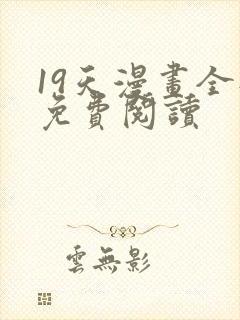 19天漫畫全
免費閱讀
雲無影